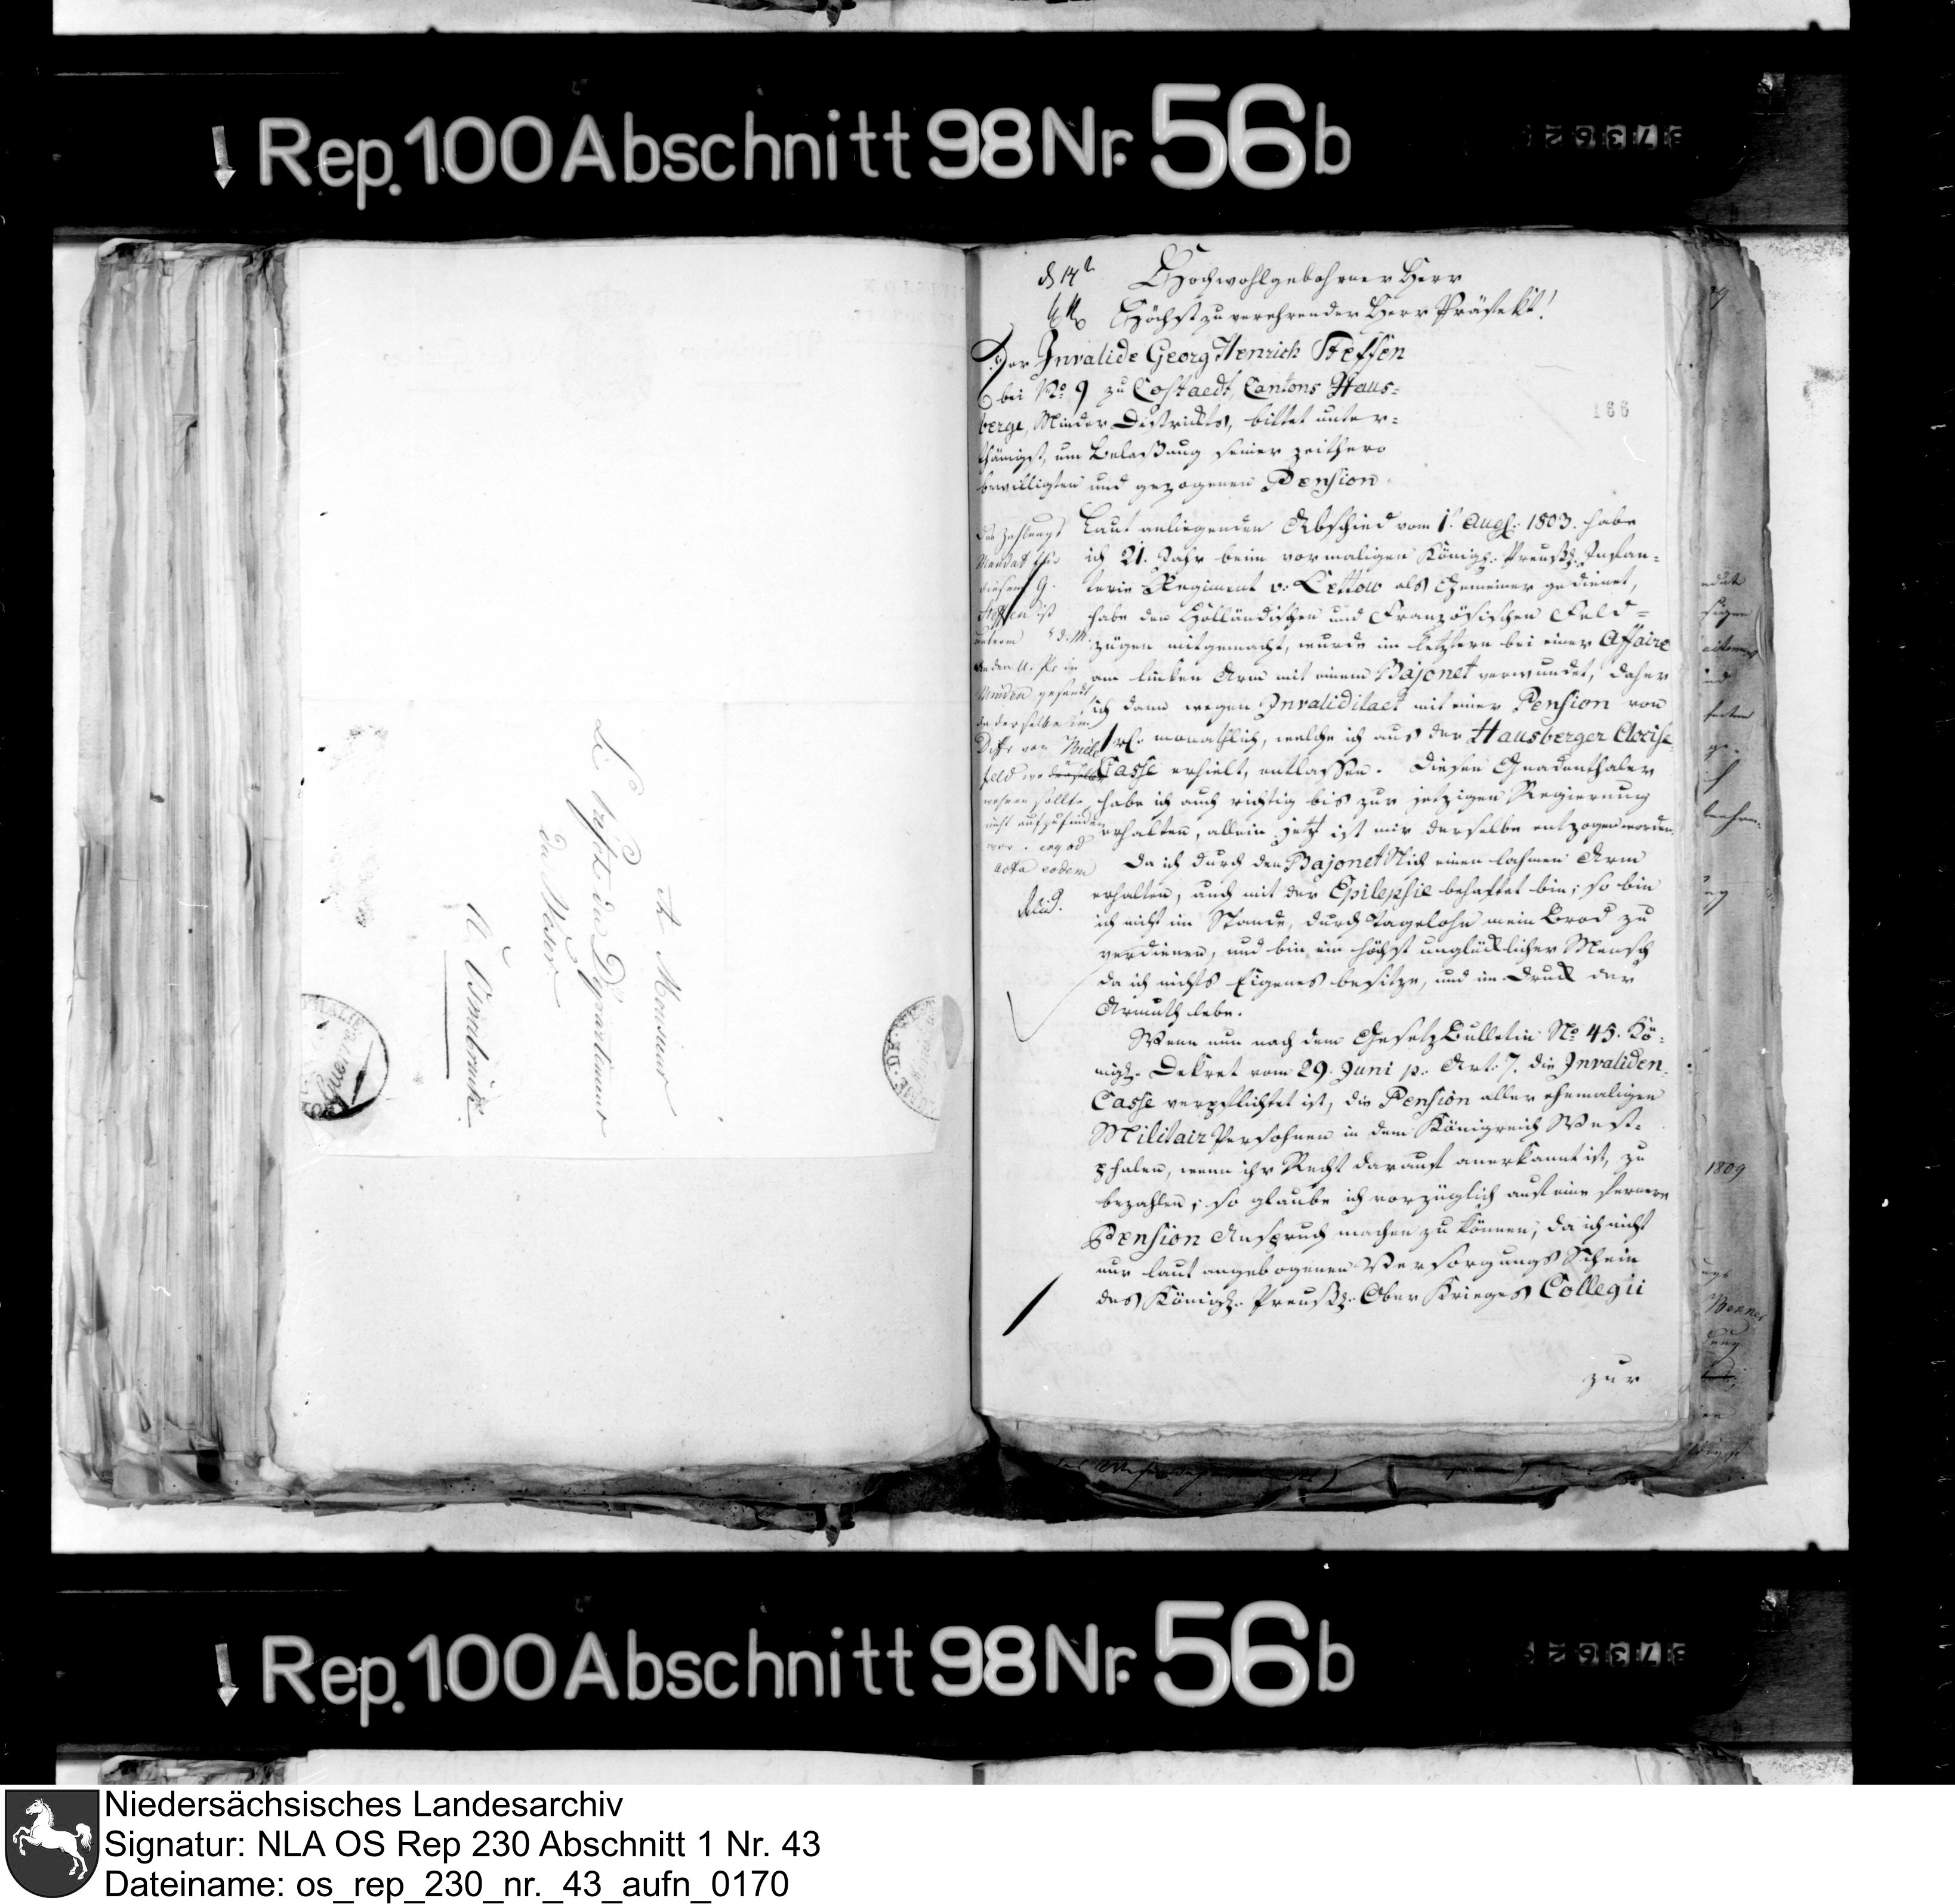 Rep. 100 Abschnitt 98 Nr. 56b
A Monsieur
Le Préfet du Département
du Weser
à Osnabruck.
Hochwohlgebohrner Herr
Höchstzuverehrender Herr Präfekt!
Der Invalide Georg Henrich Steffen
bei No. 9 zu Costaedt, Cantons Haus-
berge, Minder Districkts, bittet unter-
thänigst, um Belaßung seiner zeithero
bewilligten und gezogenen Pension.
166
Laut anliegenden Abschied vom 1t. Augt. 1803. habe
ich 21. Jahr beim vormaligen Königl. Preußl. Infan-
terie Regiment v: Lettow als Gemeiner gedienet,
habe den Holländischen und Französischen Feld-
zügen mitgemacht, wurde im letztern bei einer Affaire
am linken Arm mit einem Bajonet verwundet, daher
ich dann wegen Invaliditaet mit einer Pension von
1 rl. monathlich, welche ich aus der Hausberger Accise
Casse erhielt, entlassen. Diesen Gnadenthaler
habe ich auch richtig bis zur jetzigen Regierung
erhalten, allein jetzt ist mir derselbe entzogen worden.
Da ich durch den Bajonet Stich einen lahmen Arm
erhalten, auch mit der Epilepsie behaftet bin; so bin
ich nicht im Stande, durch Tagelohn mein Brod zu
verdienen, und bin ein höchst unglücklicher Mensch
da ich nichts Eigenes besitze, und im Druck der
Armuth lebe.
Wenn nun nach dem Gesetz Bulletin No. 45. Kö-
nigl. Dekret vom 29. Juni p. Art. 7. die Invaliden-
Casse verpflichtet ist, die Pension aller ehemaligen
Militair Persohnen in dem Königreich West-
phalen, wenn ihr Recht darauf anerkannt ist, zu
bezahlen; so glaube ich vorzüglich auf eine fernere
Pension Anspruch machen zu können, da ich nicht
nur laut angebogenen Versorgungs Schein
des Königl. Preußl. Ober Krieges Collegii
zur
Das Zahlungs
Mandat für
diesen G.
Steffen ist
unterm 5 d. M.
an den U. Pr. in
Minden gesandt,
da derselbe
von Biele
feld wo
wohnen sollte,
nicht aufzufinden
war.
acta eodem
1809
Rep. 100 Abschnitt 98 Nr. 56b
Niedersächsisches Landesarchiv
Signatur: NLA OS Rep 230 Abschnitt 1 Nr. 43
Dateiname: os_rep_230_nr._43_aufn_0170